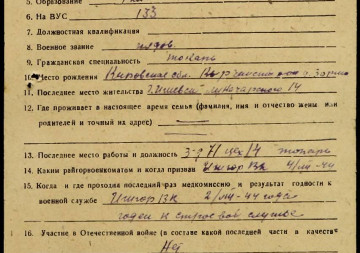 5. Образование
6. На ВУС 133
7. Должностная квалификация
8. Военное звание рядов.
9. Гражданская специальность токарь
10. Место рождения Кировская обл.
11. Последнее место жительства г. Ижевск 14
12. Где проживает в настоящее время семья (фамилия, имя и отчество жены или
родителей и точный их адрес)
13. Последнее место работы и должность з-д 71 цех 14 токарь
14. Каким рейгорвоенкоматом и когда призван 44
15. Когда и где проходил последний раз медкомиссию и результат годности к
военной службе 44 года
годен к строевой службе
16. Участие в Отечественной войне (в составе какой последней части в качеств
Нет